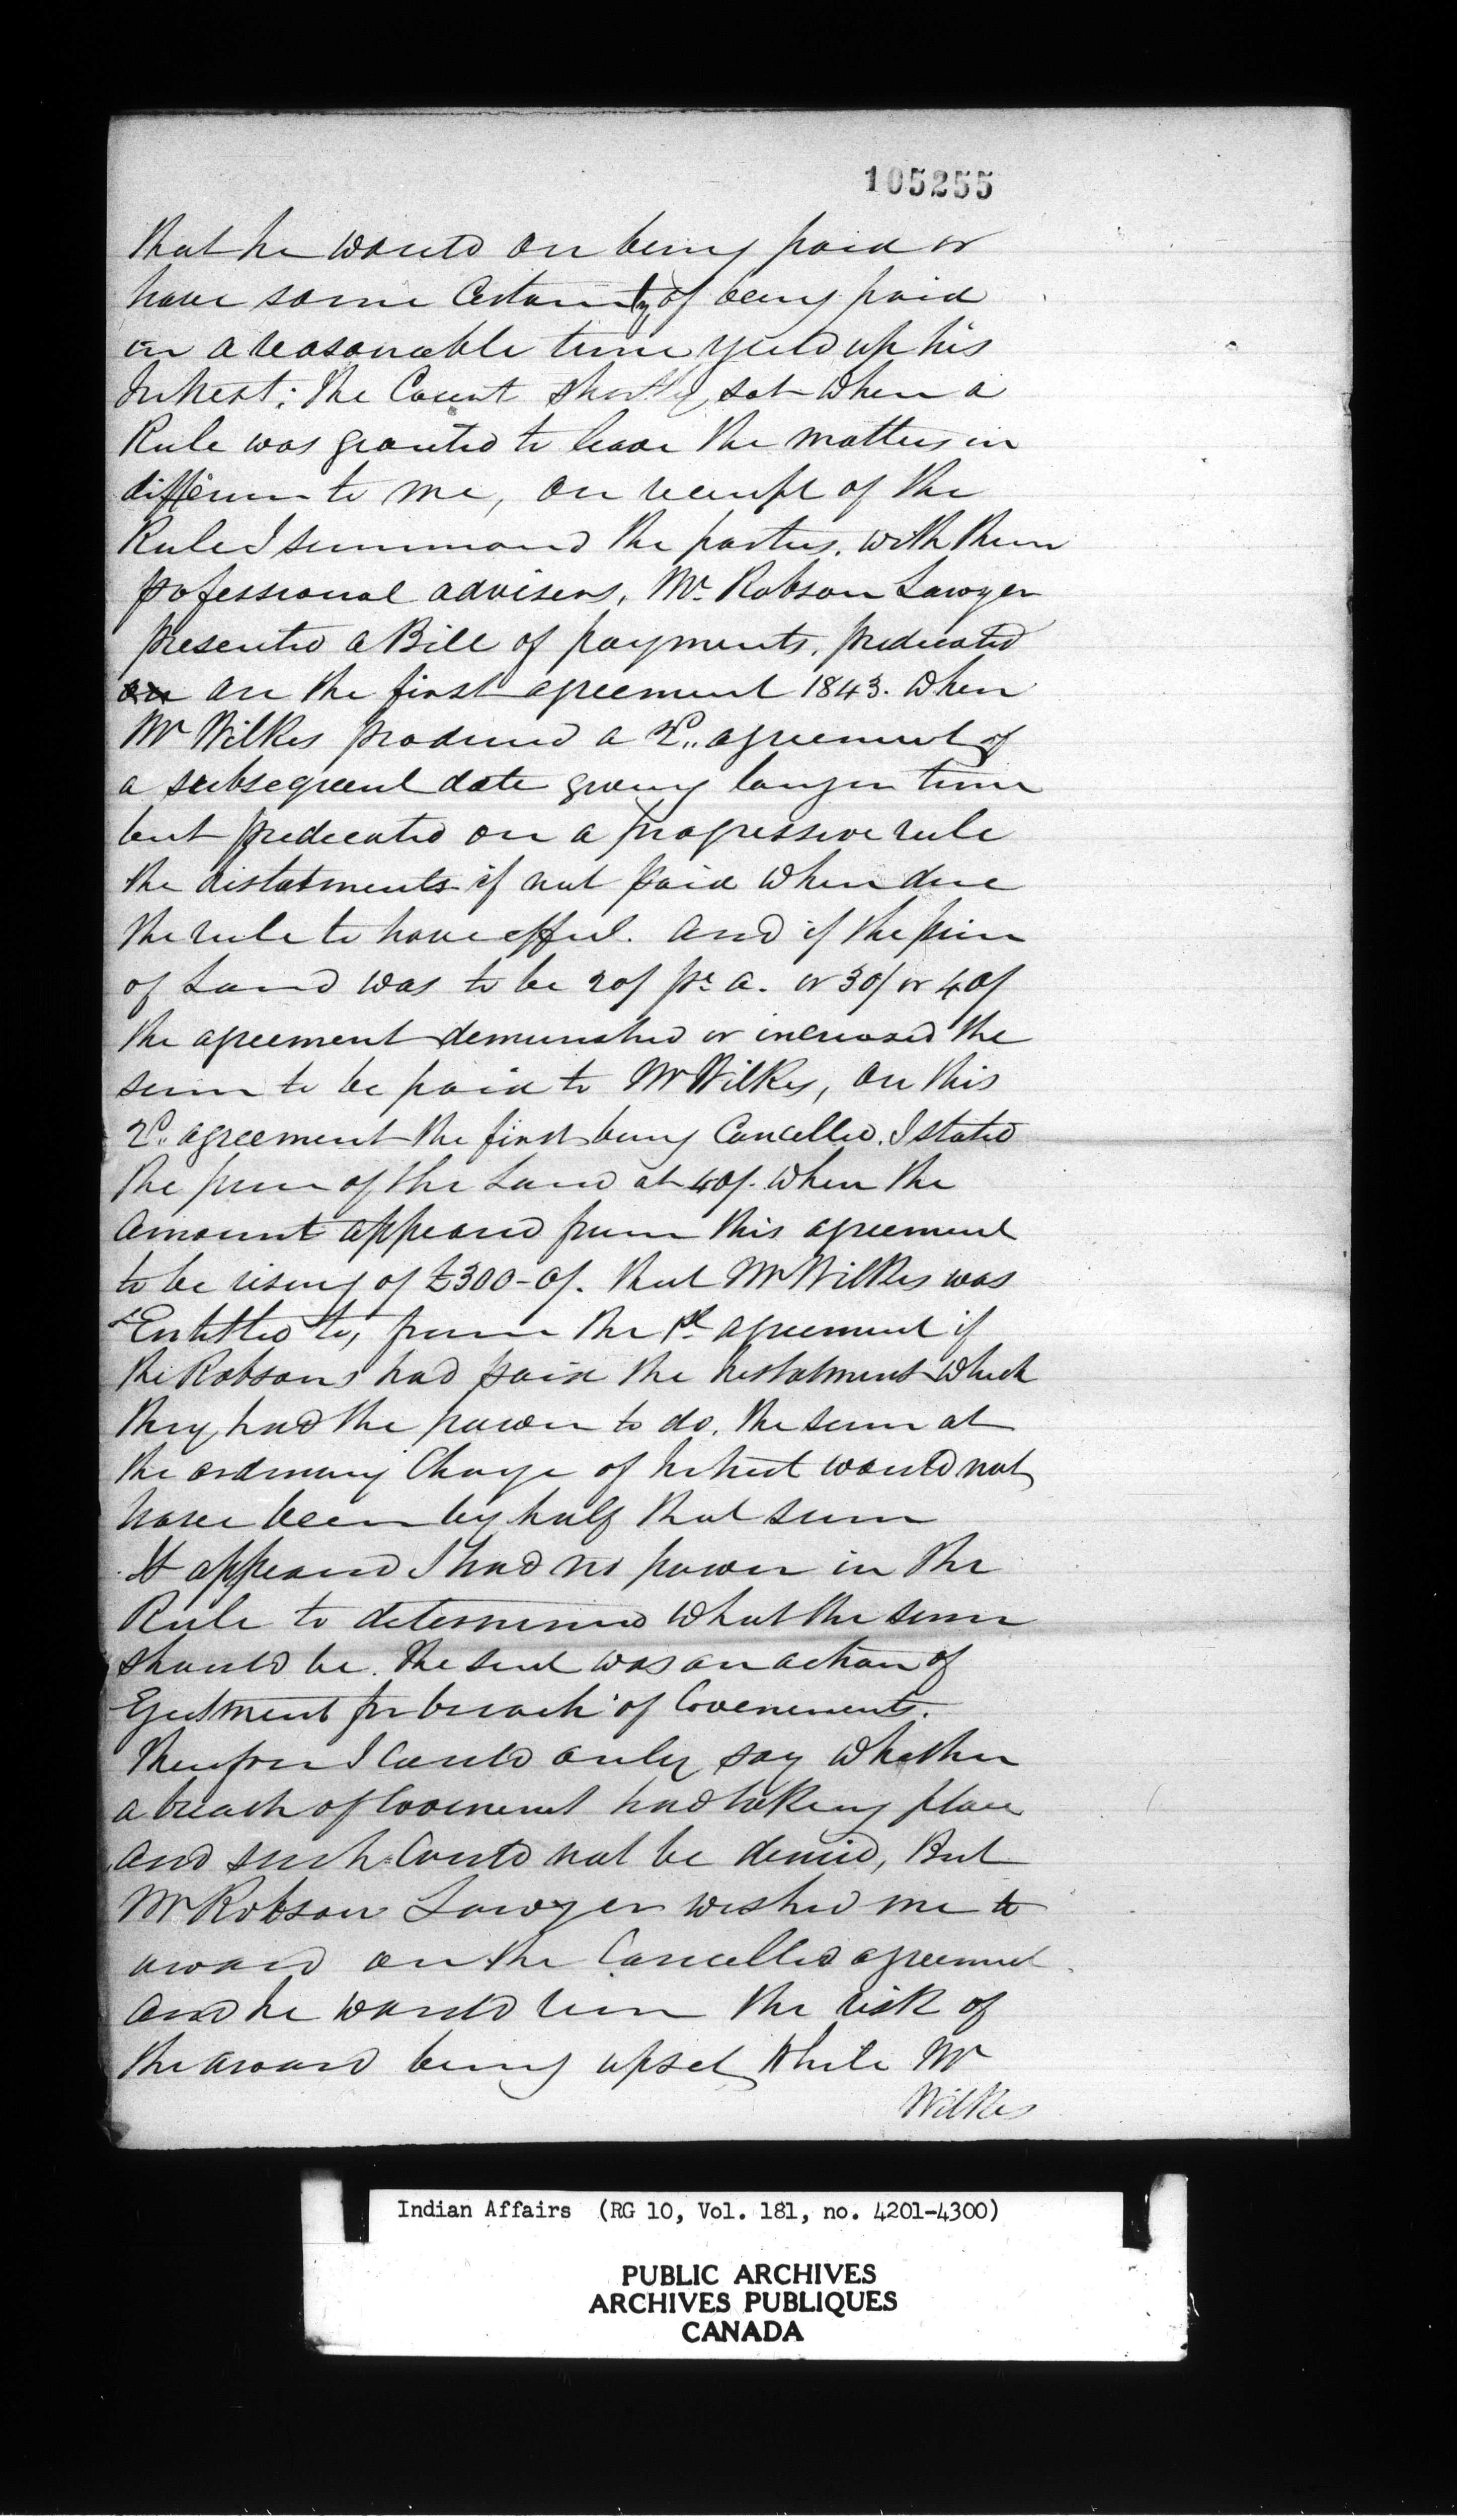 105255
that he would on being paid or
have some Certainty of being paid
in a reasonable time yield up his
Interest; the Court shortly sat when a
Rule was granted to leave the matters in
difference to me, on receipt of the
Rule I summoned the parties, with their
pofessional advisers, Mr. Robson Lawyer
presented a Bill of payments, predicated
on on the first agreement 1843. when
Mr Wilkes produced a 2d. agreement of
a subsequent date giving longer time
but predecated on a progressive rule
the instatments if not paid when due
the rule to have effect. and if the price
of Land was to be 20/ pr. a. or 30/ or 40/
the agreement demenished or increased the
sum to be paid to Mr Wilkes, on this
2d. agreement the first being Cancelled. I stated
the price of the Land at 40/. when the
amount appeared from this agreement
to be rising of £300-0/. that Mr Wilkes was
Entitled to, from the 1st agreement if
the Robsons had paid the Instatments which
they had the power to do, the sum at
the ordinary Charge of Interest would not
have been by half that sum
It appeared I had no power in the
Rule to determined what the sum
should be. The suit was an action of
Ejectment for breach of Covenements.
Therefore I could only say whether
a breach of Covenent had taking place
and such Could not be denied, But
Mr Robson Lawyer wished me to
award on the Cancelled agreement
and he would run the risk of
the award being upset while Mr
Wilkes
Indian Affairs (RG 10, Vol. 181, no. 4201-4300)
PUBLIC ARCHIVES
ARCHIVES PUBLIQUES
CANADA